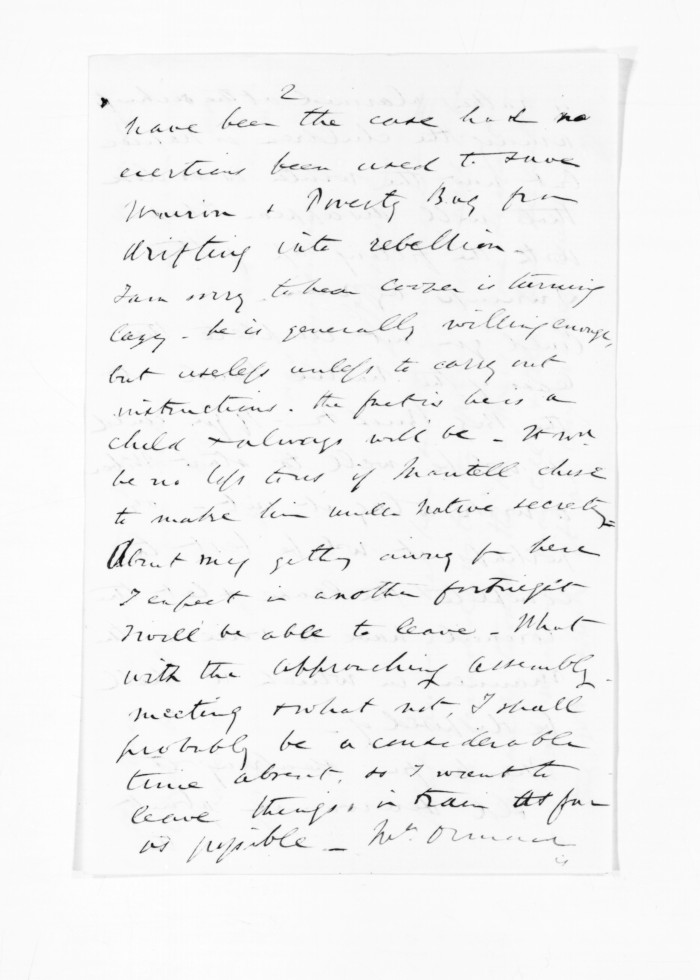 2
have been the case had no
exertions been used to save
Wairoa & Poverty Bay from
drifting into rebellion -
I am sorry to hear Cooper is turning
lazy - he is generally willing enough,
but useless unless to carry out
instructions. the fact is he is a
child & always will be -
be no loss to us if Mantell chose
to make him under Native Secrety
About my getting away fm here
I expect in another fortnight
I will be able to leave - What
with the approaching assembly
meeting & what not, I shall
probably be a considerable
time absent, so I want to
leave things in train as far
as possible - Mr. Ormond
is